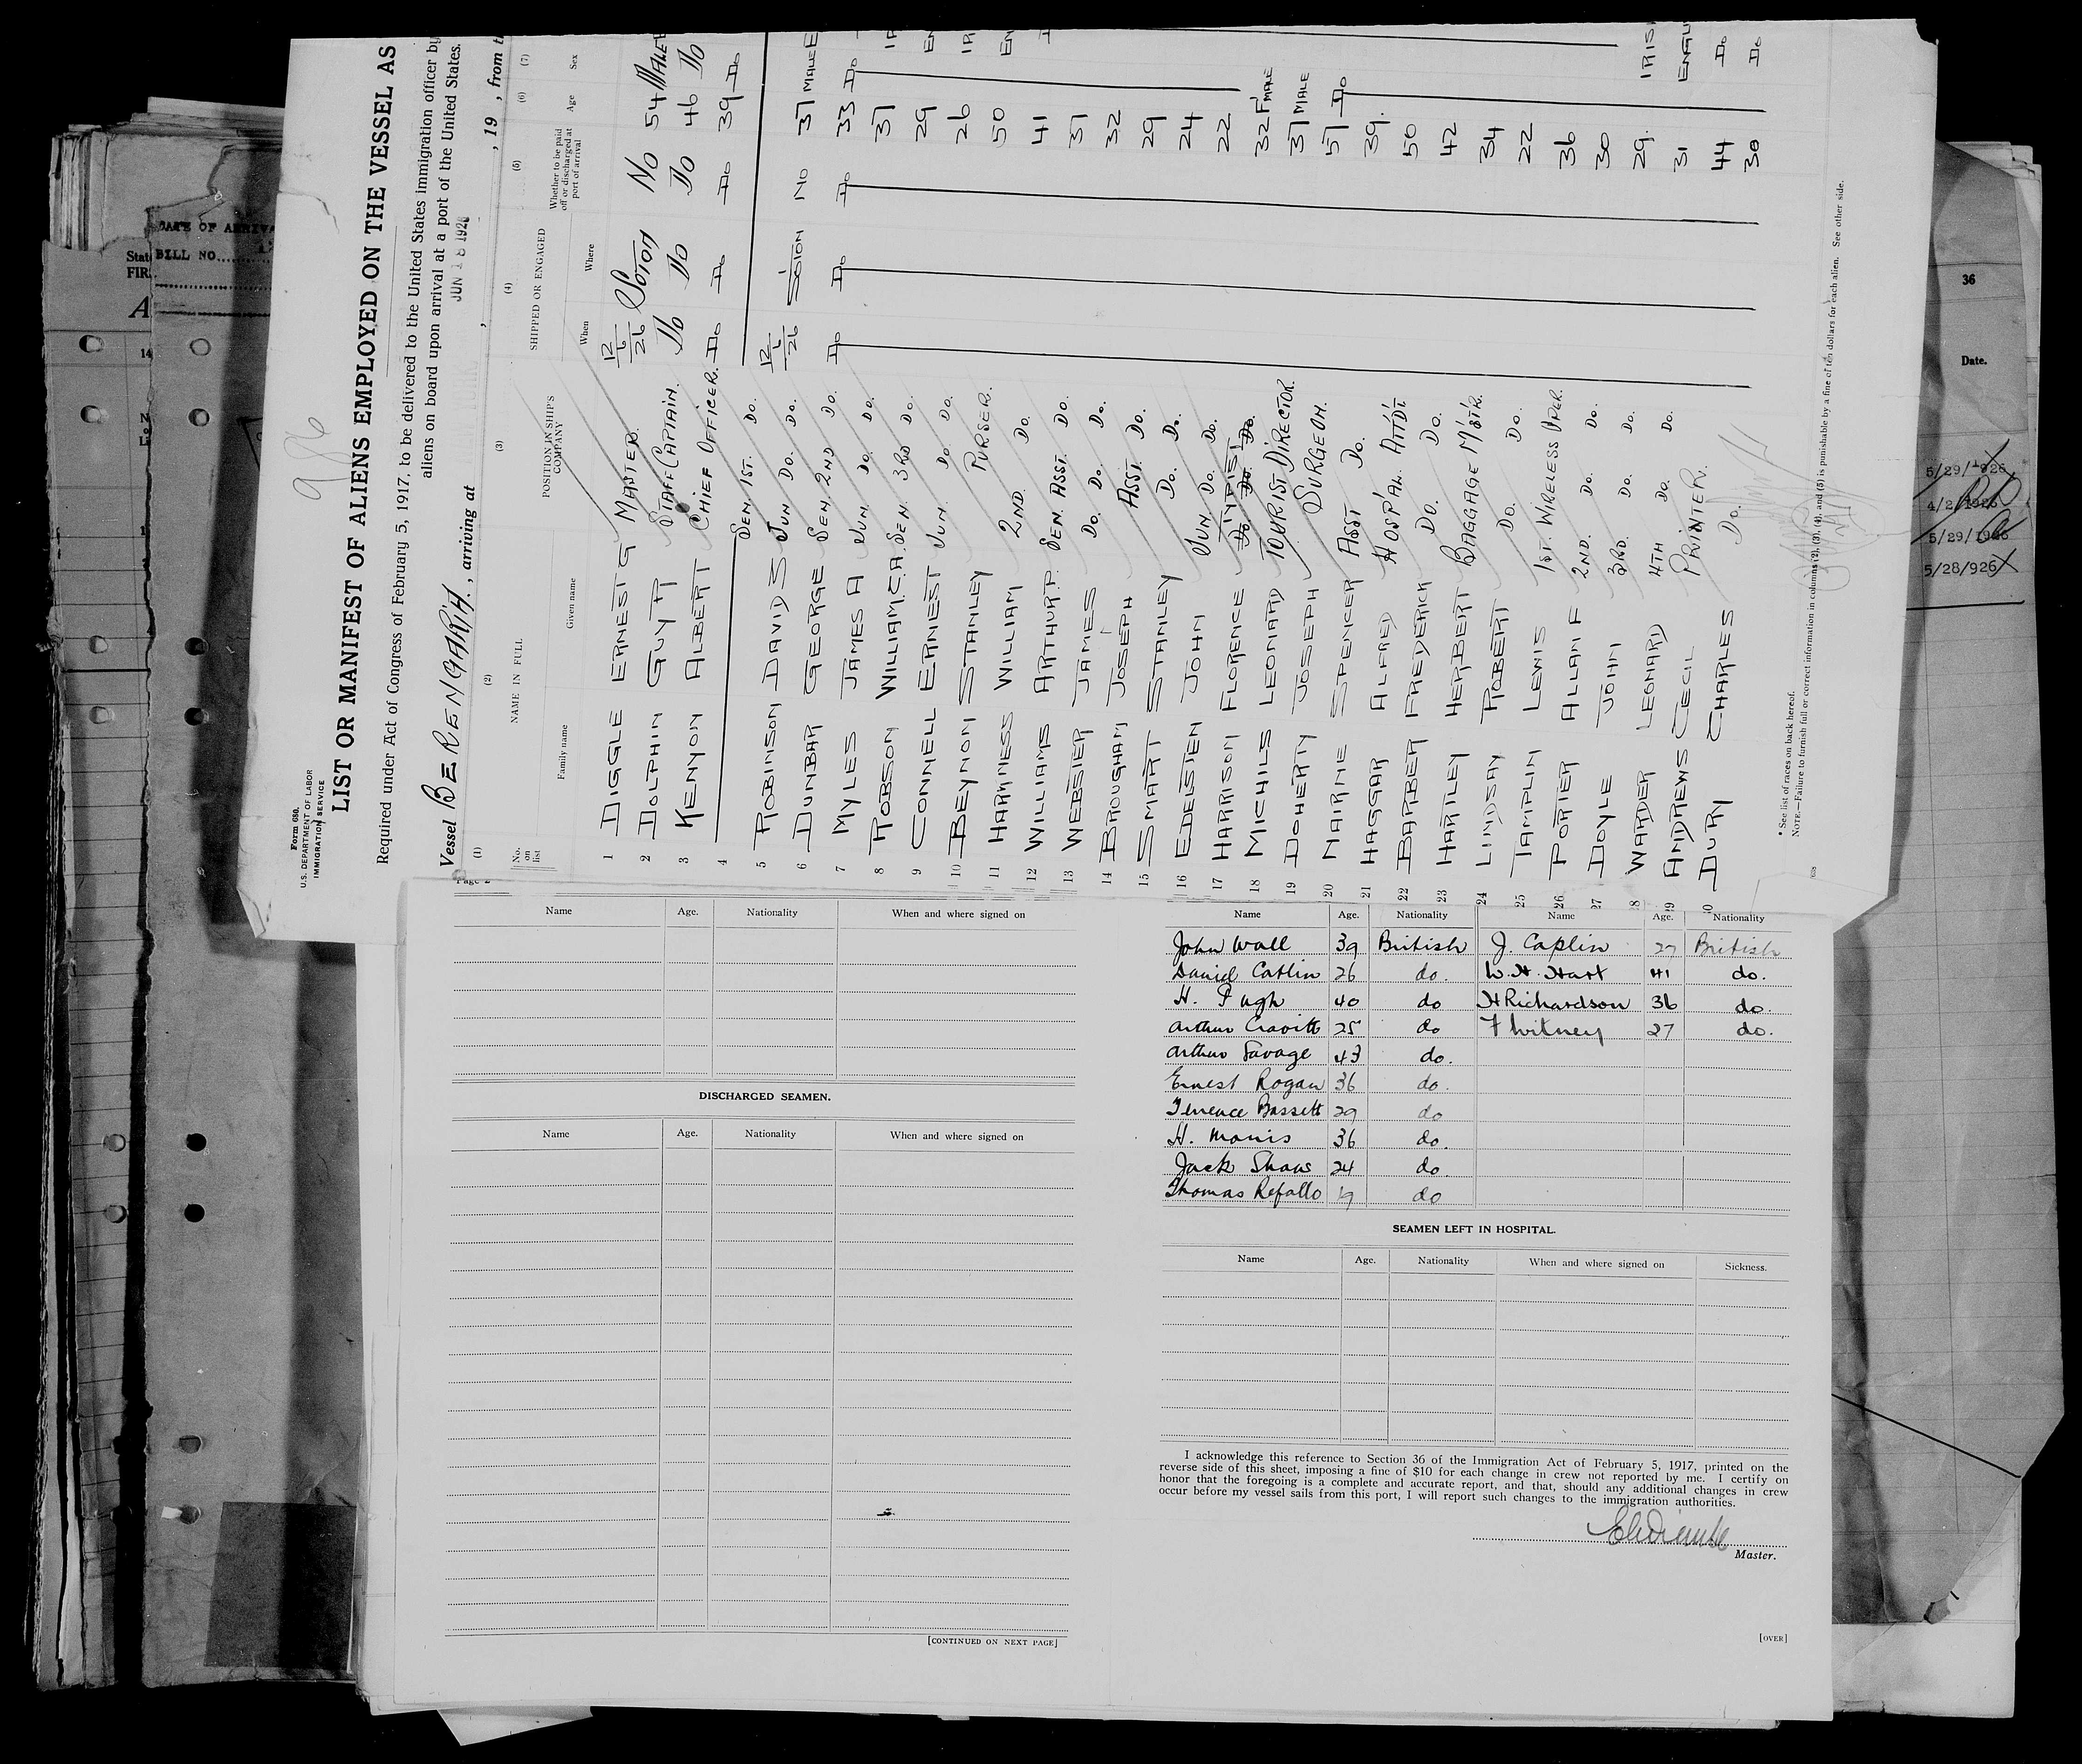 Form 680.
U.S. DEPARTMENT OF LABOR
IMMIGRATION SERVICE
986
LIST OR MANIFEST OF ALIENS EMPLOYED ON THE VESSEL AS
Required under Act of Congress of February 5, 1917, to be delivered to the United States immigration officer by
aliens on board upon arrival at a port of the United States.
Vessel BERENGARIA, arriving at JUN 18 1926, 19 , from
(1) (2) (3) (4) (5) (6) (7)
No. on list NAME IN FULL Family name Given name POSITION IN SHIP'S COMPANY SHIPPED OR ENGAGED When Where Whether to be paid off or discharged at port of arrival Age Sex
1 DIGGLE ERNEST G MASTER. 12/6/26 SOTON NO 54 MALE
2 DOLPHIN GUY STAFF CAPTAIN. DO DO DO 46 DO
3 KENYON ALBERT CHIEF OFFICER. DO DO DO 39 DO
4
5 ROBINSON DAVID S SEN. 1ST. DO. 12/6/26 S'OTON NO 37 MALE
6 DUNBAR GEORGE JUN DO. DO. DO DO DO 33 DO
7 MYLES JAMES A SEN. 2ND DO. 37
8 ROBSON WILLIAM.C.A. JUN. DO. DO. 29
9 CONNELL ERNEST SEN. 3RD DO. 26
10 BEYNON STANLEY JUN. DO. DO. 50
11 HARKNESS WILLIAM PURSER. 41
12 WILLIAMS ARTHUR.P. 2ND. DO. 37
13 WEBSTER JAMES SEN. ASST. DO. 32
14 BROUGHAM JOSEPH DO. DO. DO. 29
15 SMART STANLEY ASST. DO. 24
16 EDELSTEN JOHN JUN. DO. DO. 22
17 HARRISON FLORENCE TYPIST 32 F'MALE
18 MICHILS LEONARD TOURIST DIRECTOR. 37 MALE
19 DOHERTY JOSEPH SURGEON. 57 DO
20 NAIRNE SPENCER ASST DO. 39.
21 HAGGAR ALFRED HOSP'AL ATT'DT 50
22 BARBER FREDERICK DO. DO. 42
23 HARTLEY HERBERT BAGGAGE M'STR. 34
24 LINDSAY ROBERT DO. DO. 22
25 TAMPLIN LEWIS 1ST. WIRELESS OPER. 36
26 PORTER ALLAN F 2ND. DO. DO. 30
27 DOYLE JOHN 3RD. DO. DO. 29.
28 WARDER LEONARD 4TH DO. DO. 31
29 ANDREWS CECIL PRINTER. 44
30 DURY CHARLES DO. 30
* See list of races on back hereof.
NOTE.—Failure to furnish full or correct information in columns (2), (3), (4), and (5) is punishable by a fine of ten dollars for each alien. See other side.
DATE OF
BILL NO.
36
Date.
5/29/1926
4/2/1926
5/29/1926
5/28/926
Name Age. Nationality When and where signed on
DISCHARGED SEAMEN.
Name Age. Nationality When and where signed on
[CONTINUED ON NEXT PAGE]
Name Age. Nationality Name Age. Nationality
John Wall 39 British J. Caplin 27 British
Daniel Catlin 26 do. W. H. Hart 41 do.
H. Pugh 40 do H Richardson 36 do.
Arthur Cravitt 25 do F Witney 27 do.
Arthur Savage 43 do.
Ernest Rogan 36 do.
Terence Bassett 29 do
H. Morris 36 do.
Jack Shaw 24 do.
Thomas Refallo 19 do
SEAMEN LEFT IN HOSPITAL.
Name Age. Nationality When and where signed on Sickness.
I acknowledge this reference to Section 36 of the Immigration Act of February 5, 1917, printed on the
reverse side of this sheet, imposing a fine of $10 for each change in crew not reported by me. I certify on
honor that the foregoing is a complete and accurate report, and that, should any additional changes in crew
occur before my vessel sails from this port, I will report such changes to the immigration authorities.
Master.
[OVER]